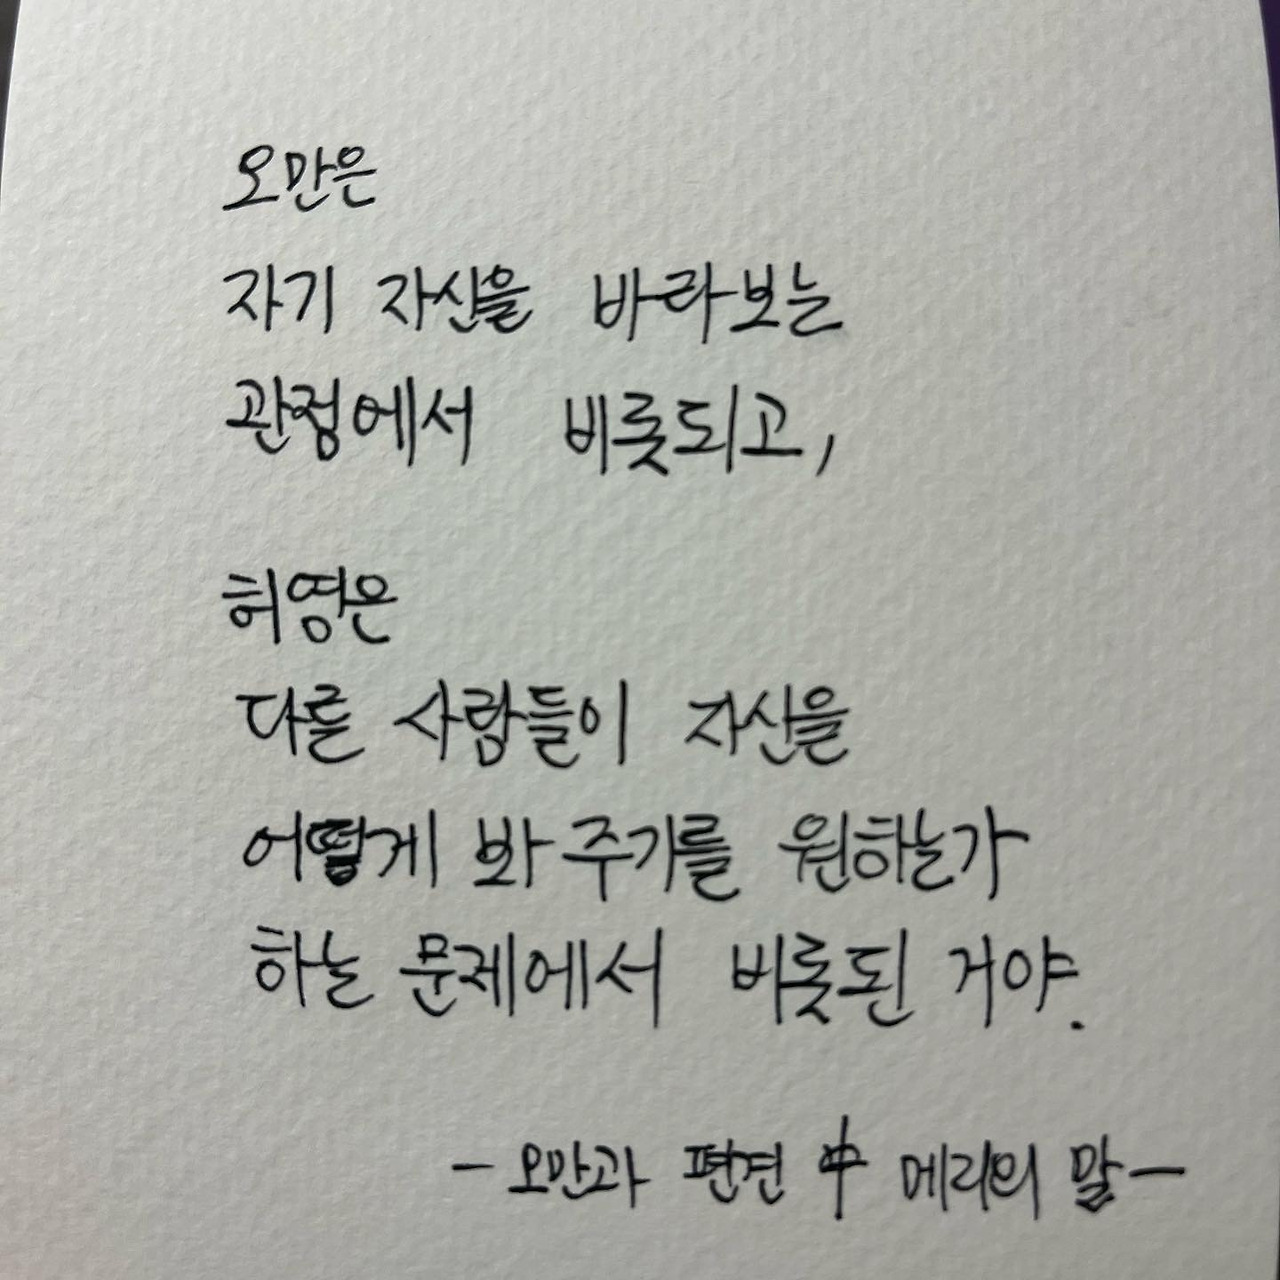 오만은
자기 자신을 바라보는
관점에서 비롯되고,
허영은
다른 사람들이 자신을
어떻게 봐 주기를 원하는가
하는 문제에서 비롯된 거야.
- 오만과 편견 中 메리의 말 -